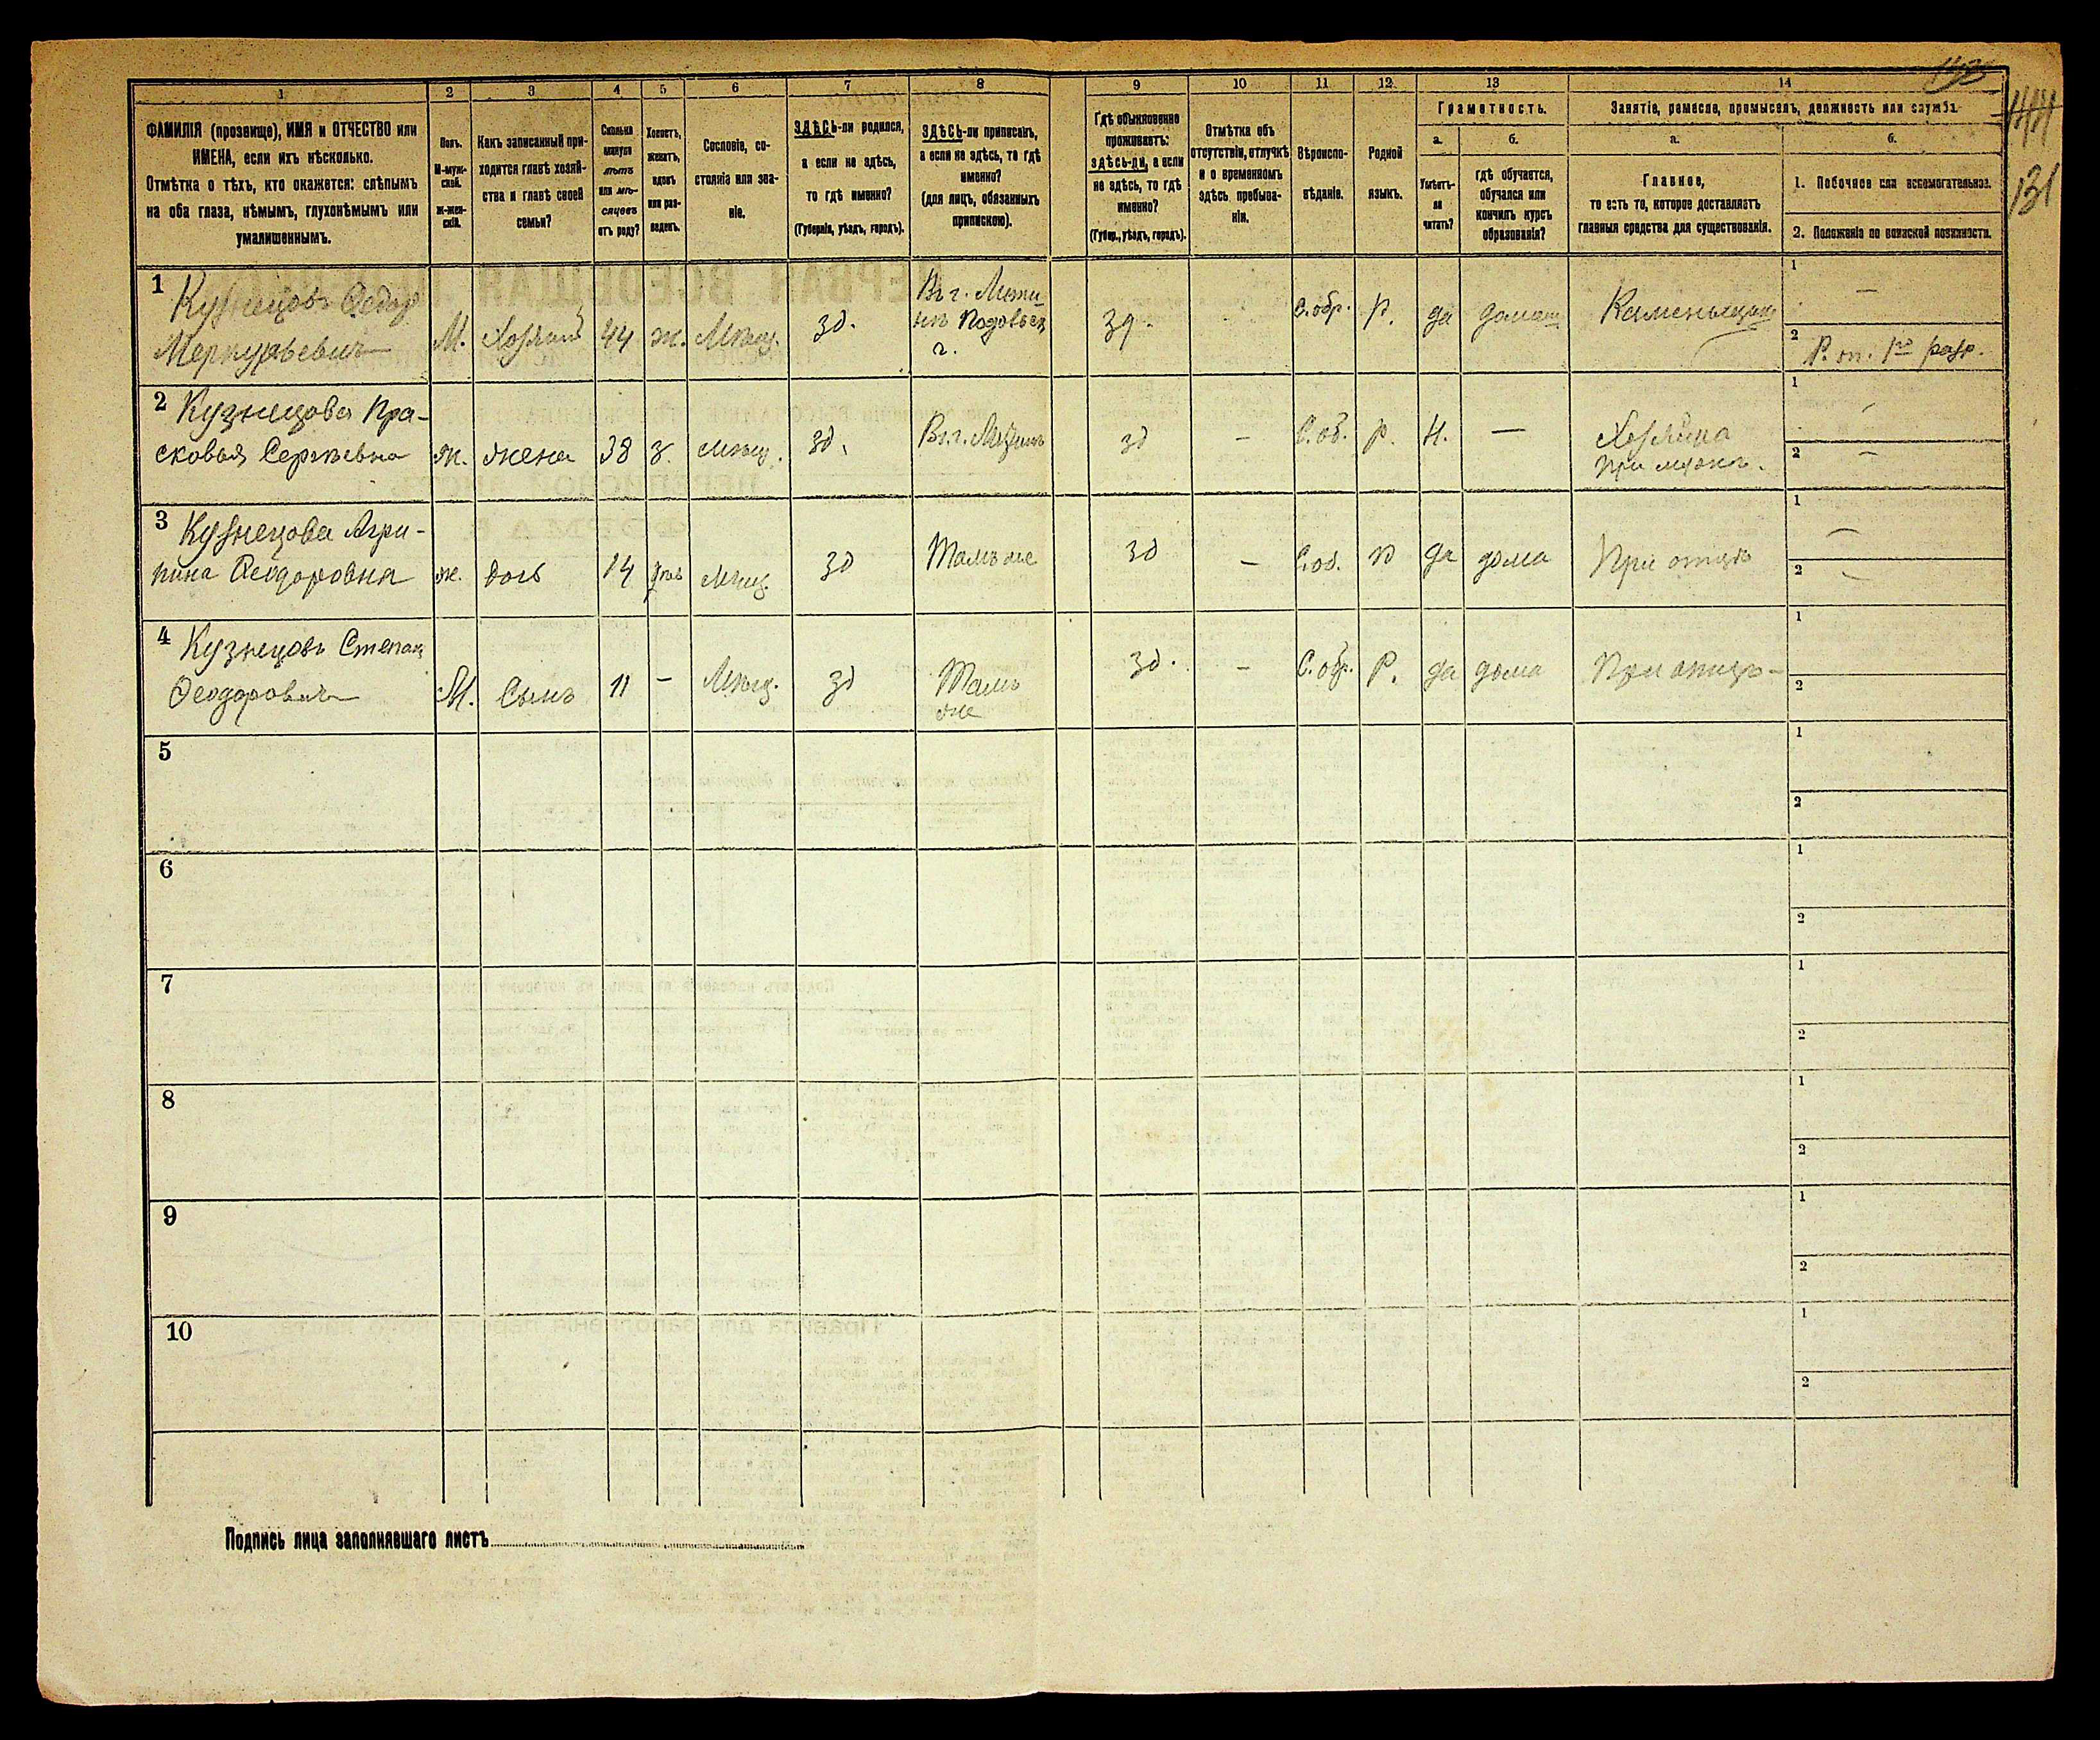 132
144
131
1 2 3 4 5 6 7 8 9 10 11 12 13 14
ФАМИЛІЯ (прозвище), ИМЯ и ОТЧЕСТВО или
ИМЕНА, если ихъ нѣсколько.
Отмѣтка о тѣхъ, кто окажется: слѣпымъ
на оба глаза, нѣмымъ, глухонѣмымъ или
умалишеннымъ.
Полъ.
М-муж-
ской.
ж-жен-
скій.
Какъ записанный при-
ходится главѣ хозяй-
ства и главѣ своей
семьи?
Сколько
минуло
лѣтъ
или мѣ-
сяцевъ
отъ роду?
Холостъ,
женатъ,
вдовъ
или раз-
веденъ.
Сословіе, со-
стояніе или зва-
ніе.
ЗДѢСЬ-ли родился,
а если не здѣсь,
то гдѣ именно?
(Губернія, уѣздъ, городъ).
ЗДѢСЬ-ли приписанъ,
а если не здѣсь, то гдѣ
именно?
(для лицъ, обязанныхъ
припискою).
Гдѣ обыкновенно
проживаетъ:
здѣсь-ли, а если
не здѣсь, то гдѣ
именно?
(Губер., уѣздъ, городъ).
Отмѣтка объ
отсутствіи, отлучкѣ
и о временномъ
здѣсь пребыва-
ніи.
Вѣроиспо-
вѣданіе.
Родной
языкъ.
Грамотность.
а.
Умѣетъ-
ли
читать?
б.
гдѣ обучается,
обучался или
кончилъ курсъ
образованія?
Занятіе, ремесло, промыселъ, должность или служба.
а.
Главное,
то есть то, которое доставляетъ
главныя средства для существованія.
б.
1. Побочное или вспомогательное.
2. Положеніе по воинской повинности.
1 Кузнецовъ Ѳедор
Меркурьевичъ М. Хозяинъ 44 ж. Мѣщ. зд.
Въ г.
Подольск
г.
зд. С. обр. р. да домаш Каменьщикъ
1 —
2 Р. оп. 1го разр.
2 Кузнецова Пра-
сковья Сергѣевна ж. жена 38 з. мѣщ. зд. Въ г. зд — С. об. р. н. — Хозяйка
при мужѣ.
1 —
2 —
3 Кузнецова Агри-
пина Ѳеодоровна ж. дочь 14 мѣщ. зд Тамъ же зд — С. об. р да дома При отцѣ
1 —
2 —
4 Кузнецовъ Степан
Ѳеодоровичъ М. Сынъ 11 — Мѣщ. зд Тамъ
же
зд. — С. обр. р. да дома При отцѣ —
1
2
5
1
2
6
1
2
7
1
2
8
1
2
9
1
2
10
1
2
Подпись лица заполнявшаго листъ